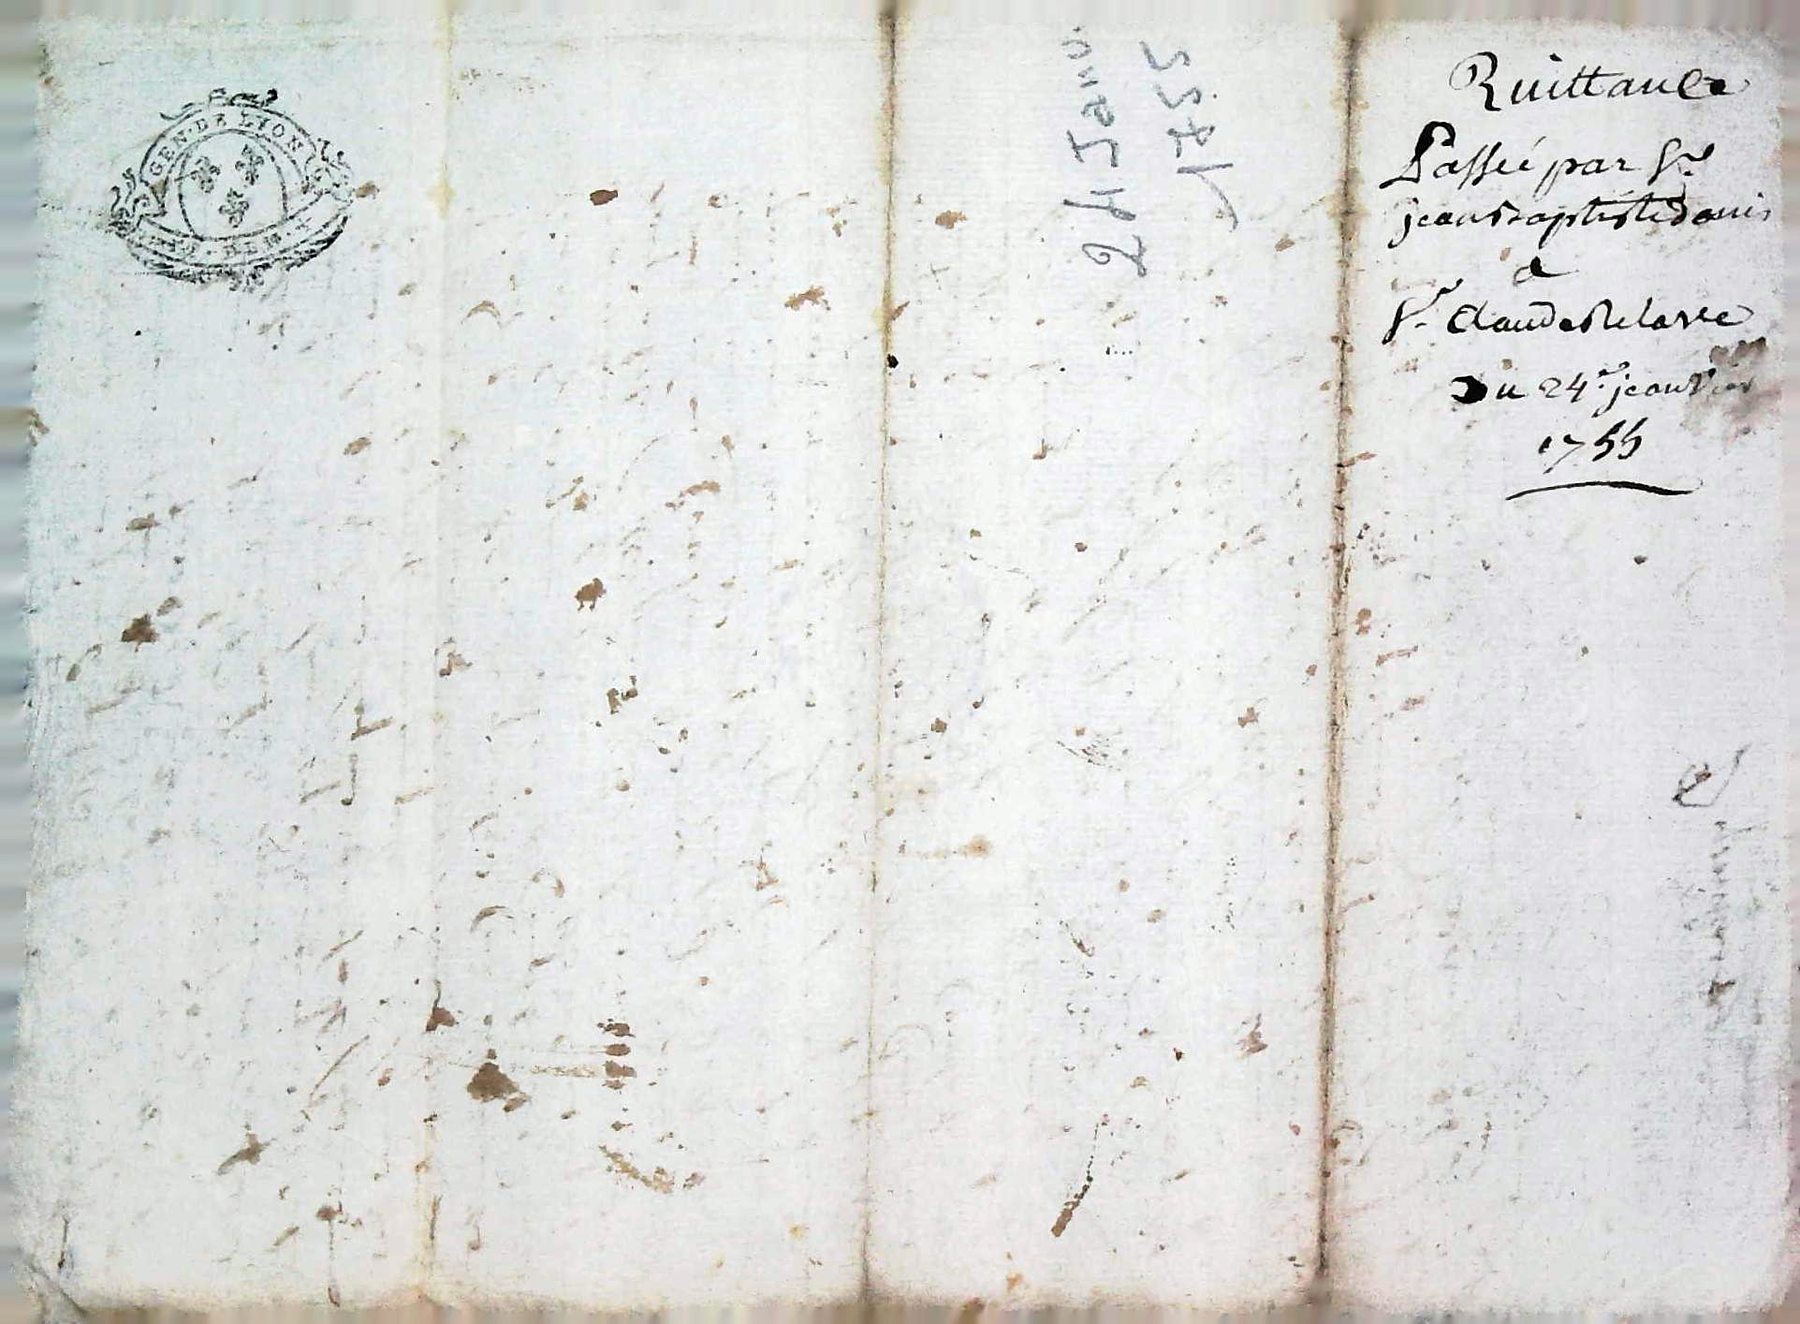 GEN·DE LION
24 Janv.
1755
Quittance
Passée par Sr
jean baptiste Danis
a
Sr Claude Delarue
Du 24e jeanvier
1755